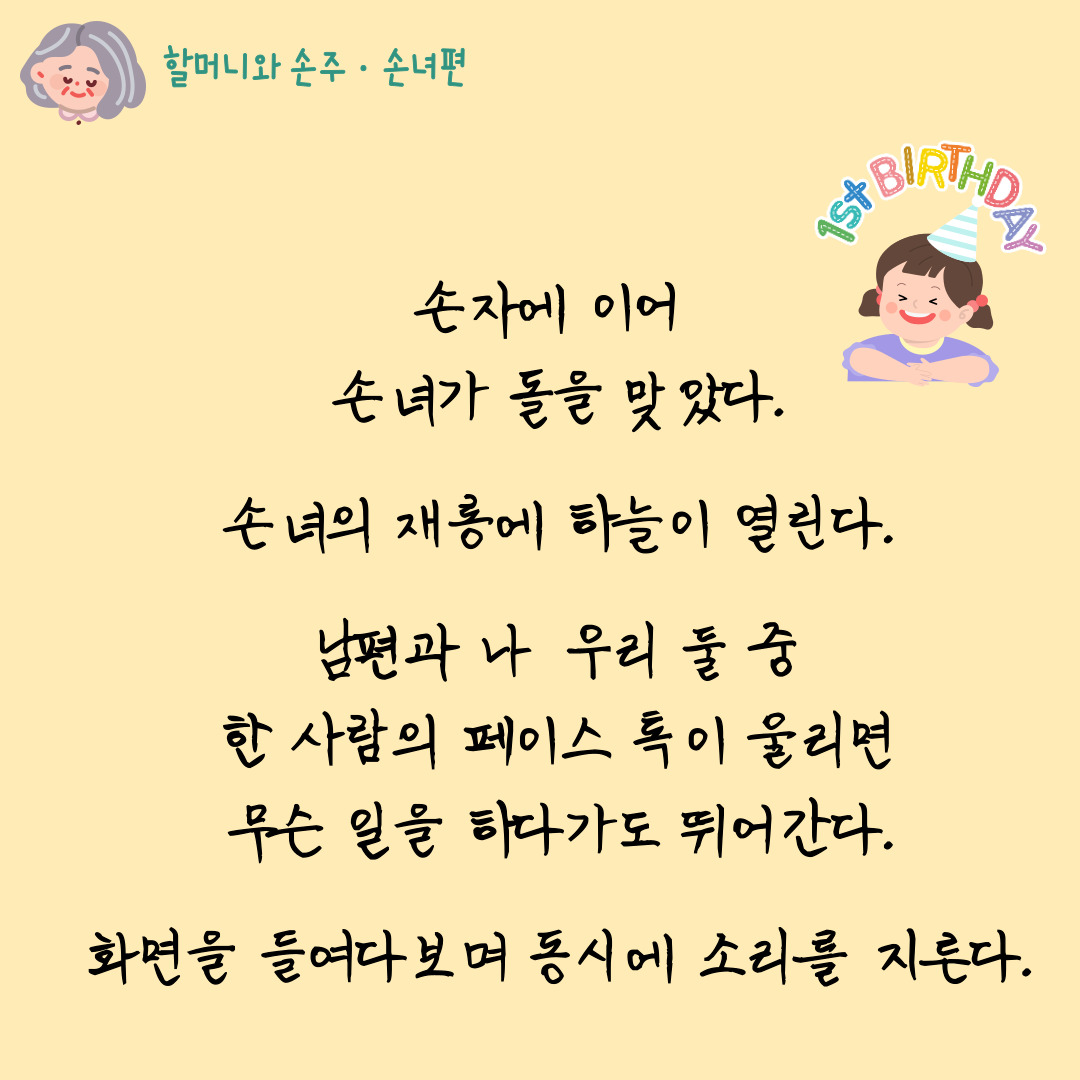 할머니와 손주 · 손녀편
1st BIRTHDAY
손자에 이어
손녀가 돌을 맞았다.
손녀의 재롱에 하늘이 열린다.
남편과 나 우리 둘 중
한 사람의 페이스 톡이 울리면
무슨 일을 하다가도 뛰어간다.
화면을 들여다보며 동시에 소리를 지른다.